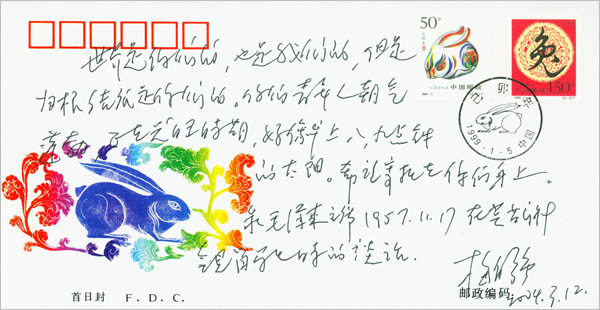 50分
CHINA 中国邮政
兔
中国邮政 150分
己卯年
1999.1.5 中国
世界是你们的，也是我们的，但是
归根结底是你们的。你们青年人朝气
蓬勃 正在兴旺时期，好像早上八、九点钟
的太阳。希望寄托在你们身上。
录毛泽东主席1957.11.17在莫斯科
时的谈话.
2004.3.12.
首日封 F.D.C.
邮政编码